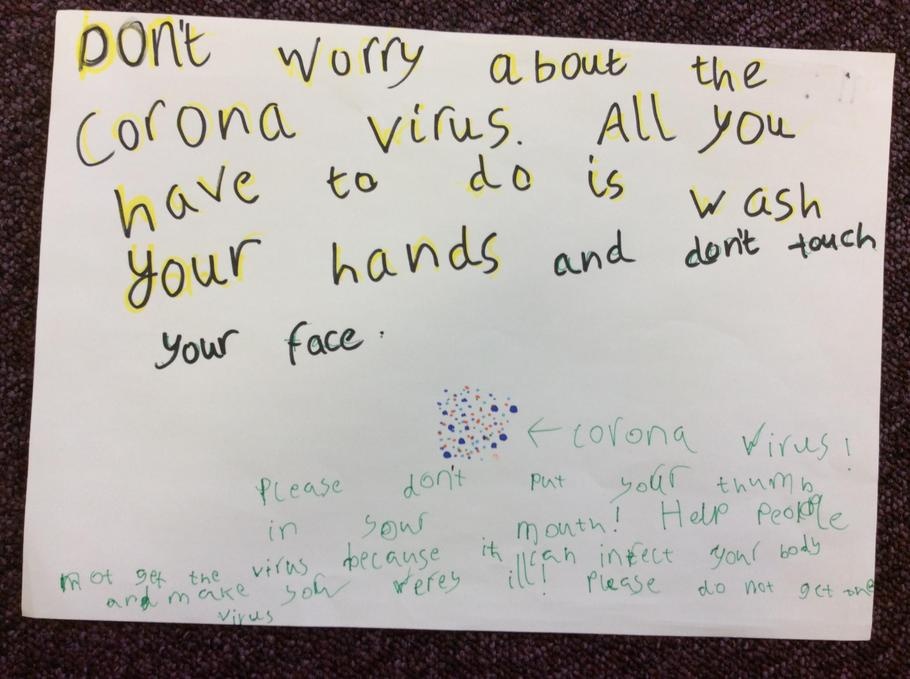 Don't worry about the
Corona virus. All you
have to do is wash
your hands and don't touch
your face.
← corona virus!
Please don't put your thumb
in your mouth! Help people
not get the virus because it can infect your body
and make you verey ill! Please do not get the
virus